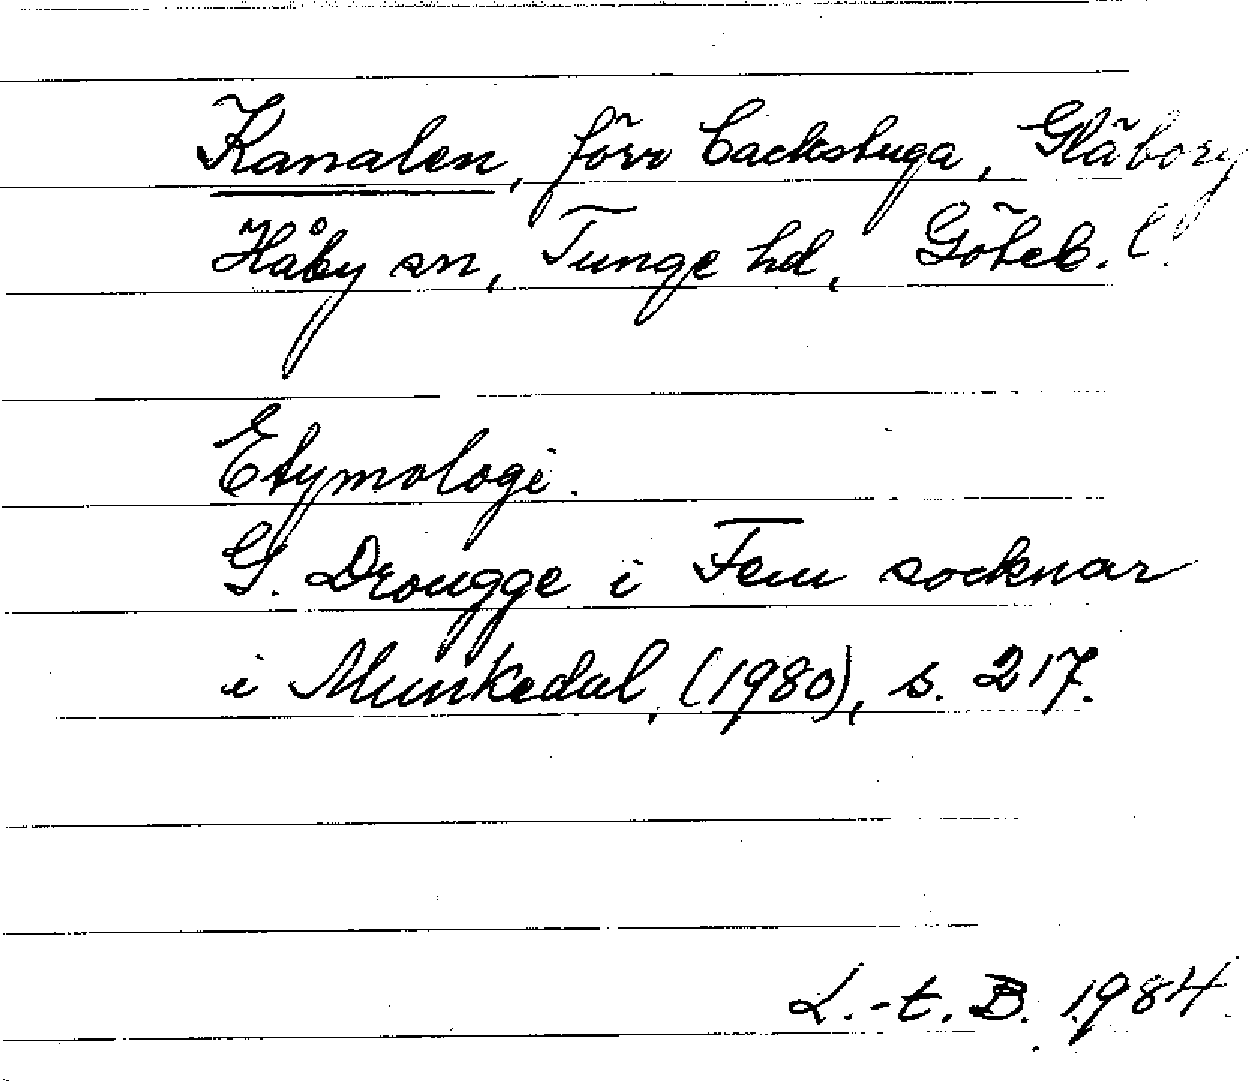 Kanalen, förr backstuga, Gläborg
Håby sn, Tunge hd, Göteb. l.
Etymologi.
G. Drougge i Fem socknar
i Munkedal, (1980), s. 217.
L.-t. B. 1984